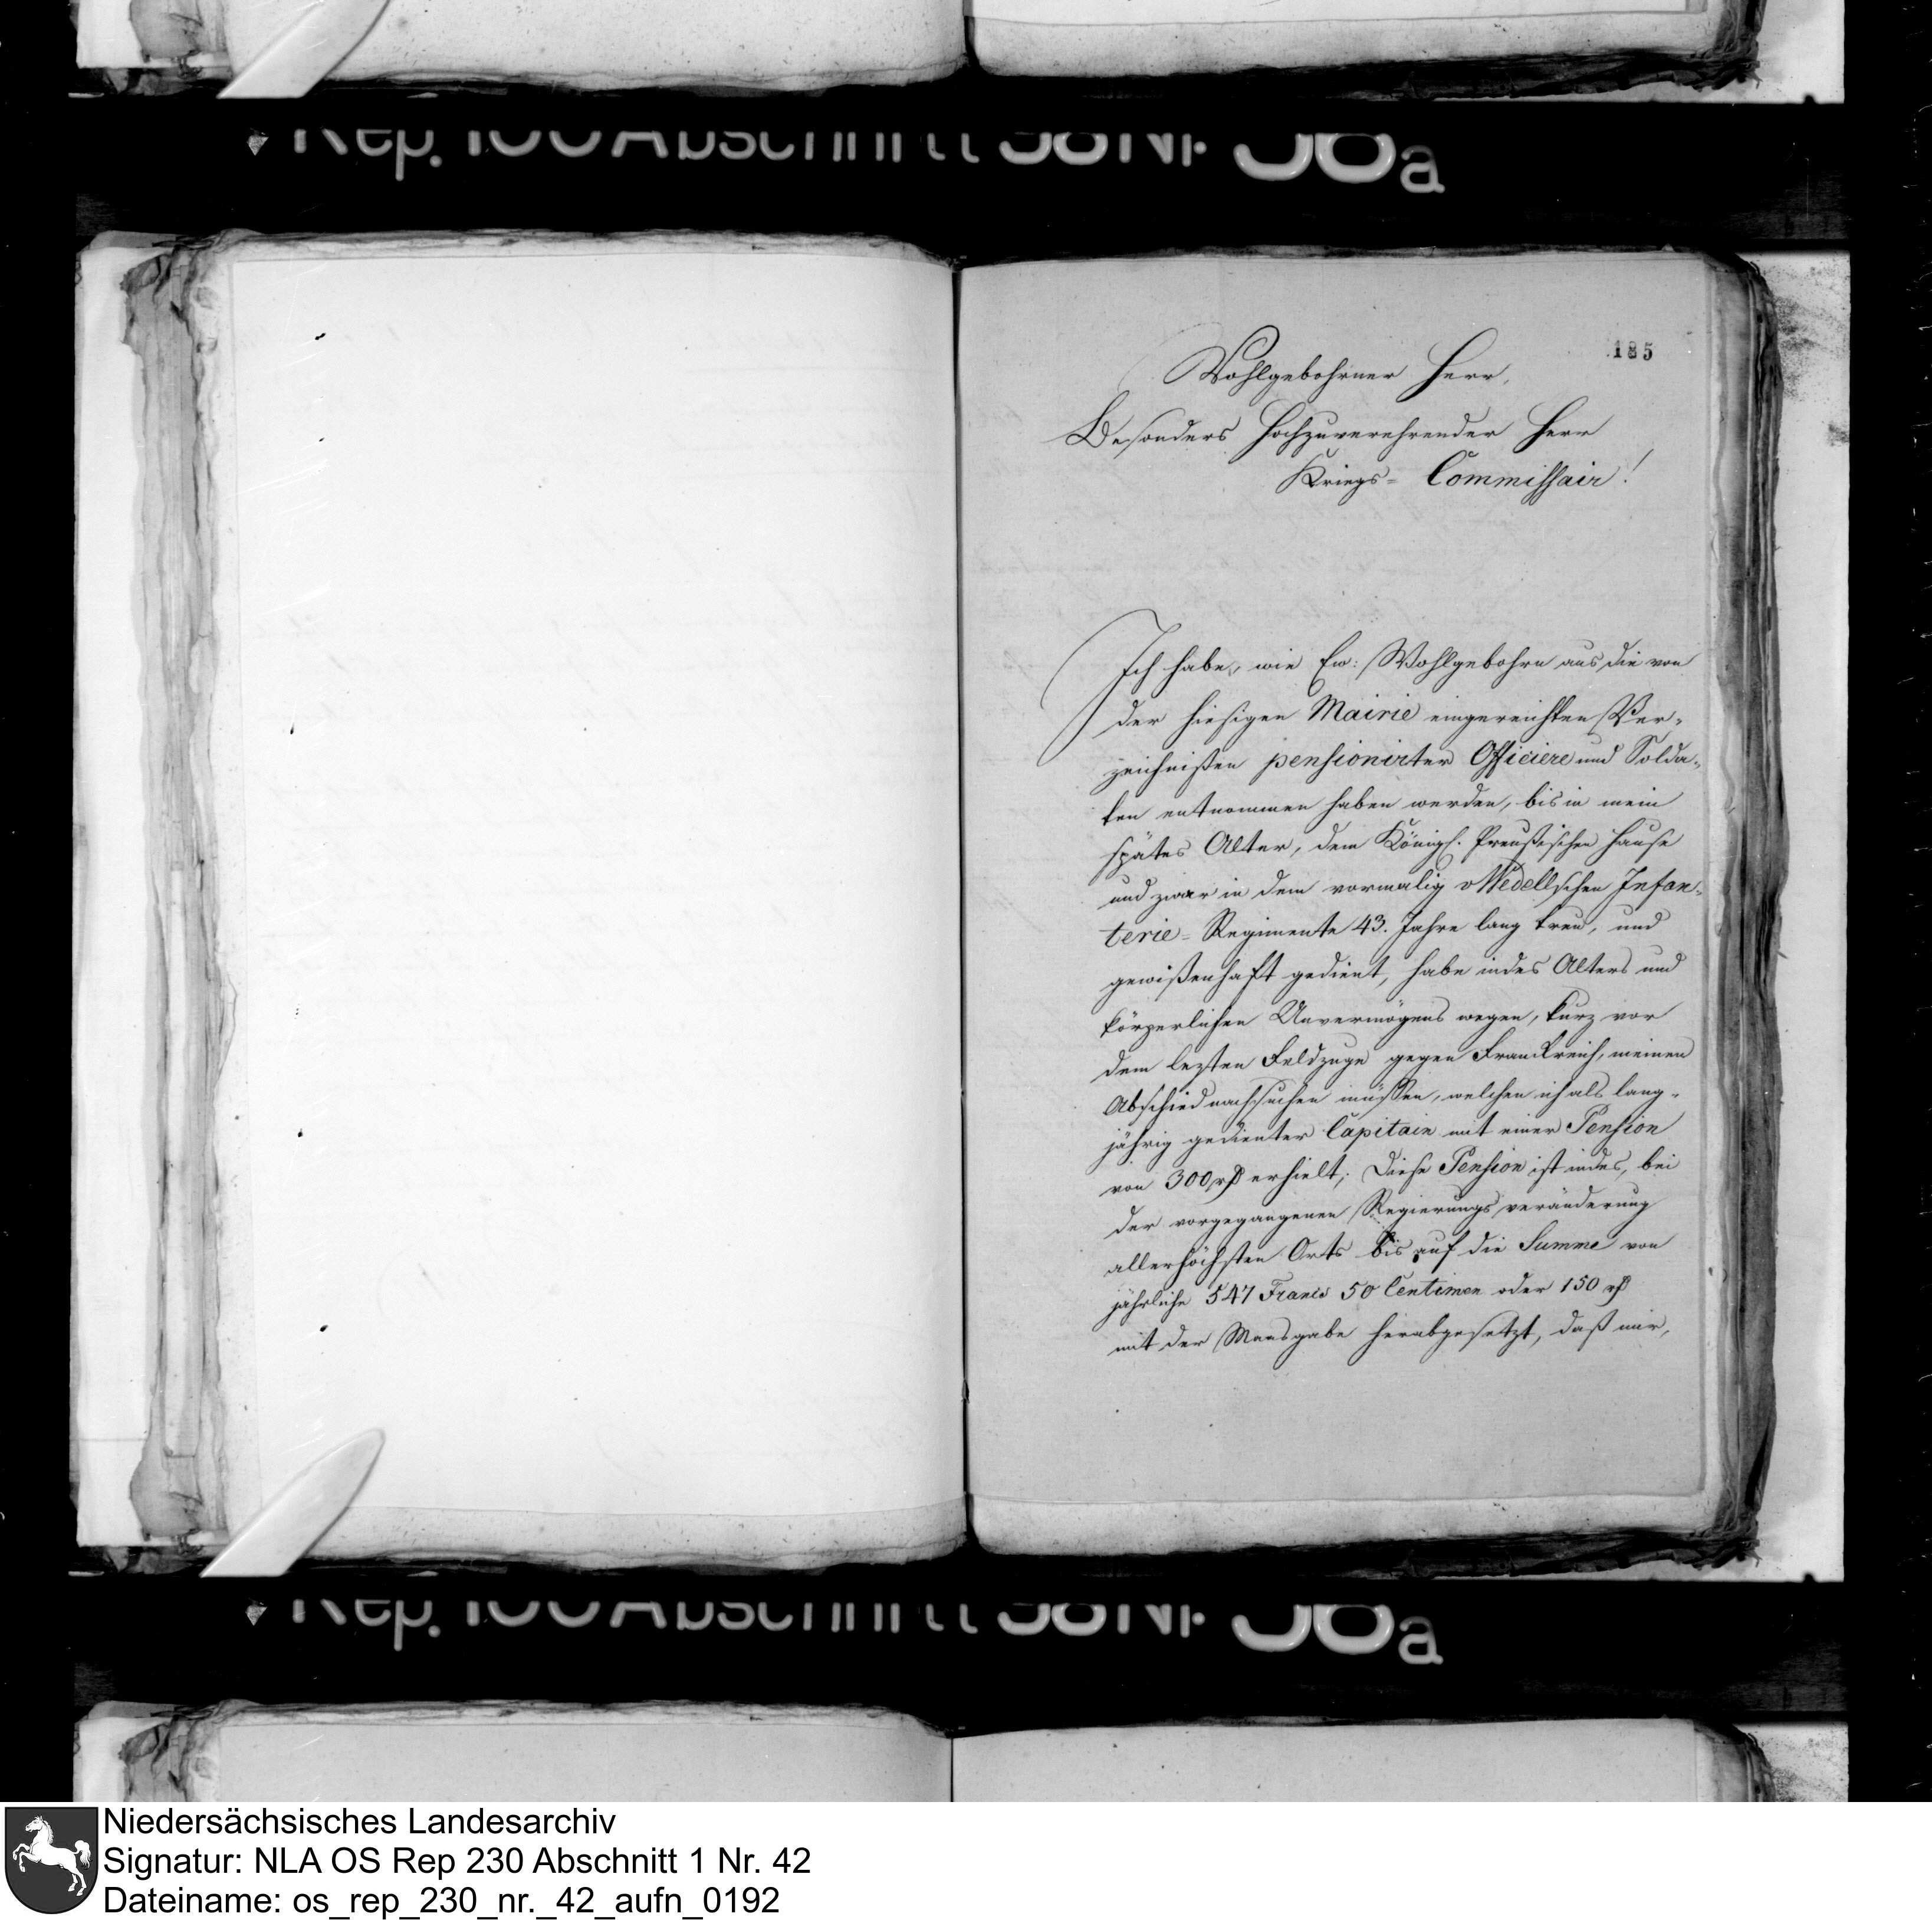 Rep. 100 Abschnitt 58 Nr. 36a
185
Wohlgebohrner Herr,
Besonders Hochzuverehrender Herr
Kriegs= Commissair!
Ich habe, wie Ew: Wohlgebohrn aus die von
der hiesigen Mairie eingereichten Ver-
zeichnißen pensionirter Officiere und Solda-
ten entnommen haben werden, bis in mein
spätes Alter, dem Königl. Preußischen Hause
und zwar in dem vormalig v Wedellschen Infan-
terie= Regimente 43. Jahre lang treu, und
gewißenhaft gedient, habe indes Alters und
körperlichen Unvermögens wegen, kurz vor
dem lezten Feldzuge gegen Franckreich, meinen
Abschied nachsuchen müssen, welchen ich als lang-
jährig gedienter Capitain mit einer Pension
von 300 rt erhielt; Diese Pension ist indes, bei
der vorgegangenen Regierungs veränderung
allerhöchsten Orts bis auf die Summe von
jährliche 547 Francs 50 Centimen oder 150 rt
mit der Maasgabe herabgesetzt, daß mir,
Rep. 100 Abschnitt 58 Nr. 36a
Niedersächsisches Landesarchiv
Signatur: NLA OS Rep 230 Abschnitt 1 Nr. 42
Dateiname: os_rep_230_nr._42_aufn_0192